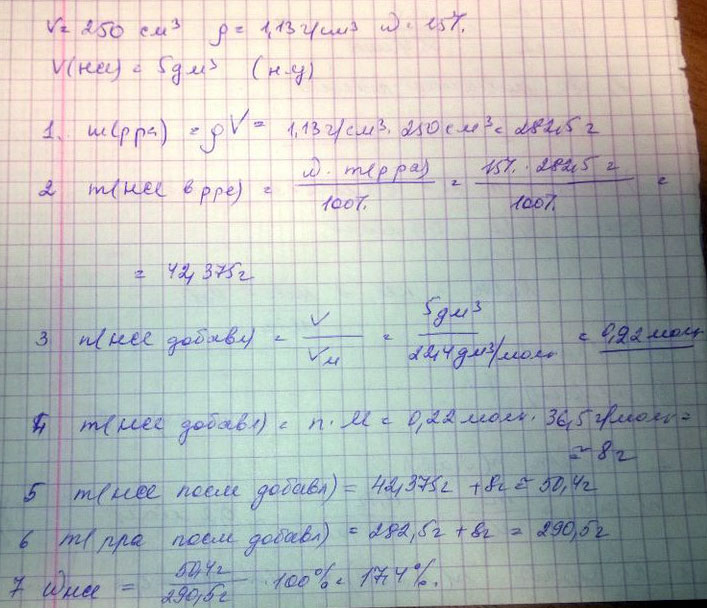 V = 250 см³ ρ = 1,13 г/см³ ω = 15%
V(HCl) = 5 дм³ (н.у)
1. m(рра) = ρV = 1,13 г/см³ · 250 см³ = 282,5 г
2 m(HCl в рре) = ω · m(рра) / 100% = 15% · 282,5 г / 100% =
= 42,375 г
3 n(HCl добавл) = V / Vм = 5 дм³ / 22,4 дм³/моль = 0,22 моль
4 m(HCl добавл) = n · M = 0,22 моль · 36,5 г/моль =
≈ 8 г
5 m(HCl после добавл) = 42,375 г + 8г ≈ 50,4 г
6 m(рра после добавл) = 282,5 г + 8г = 290,5 г
7 ω HCl = 50,4 г / 290,5 г · 100% = 17,4%.